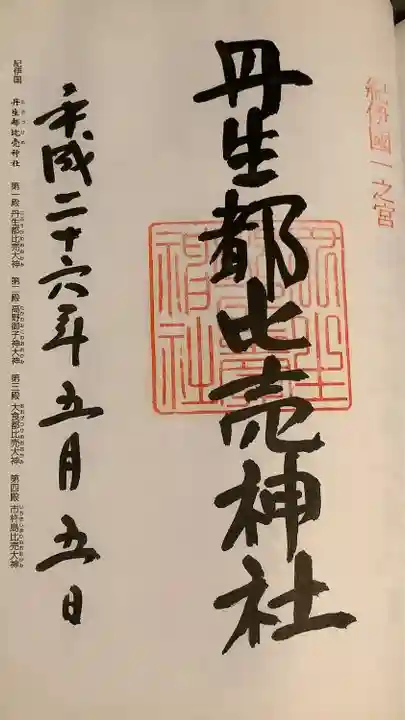 紀伊國一之宮
丹生都比売神社
平成二十六年五月五日
紀伊国 丹生都比売神社 第一殿 丹生都比売大神 第二殿 高野御子大神 第三殿 大食都比売大神 第四殿 市杵島比売大神